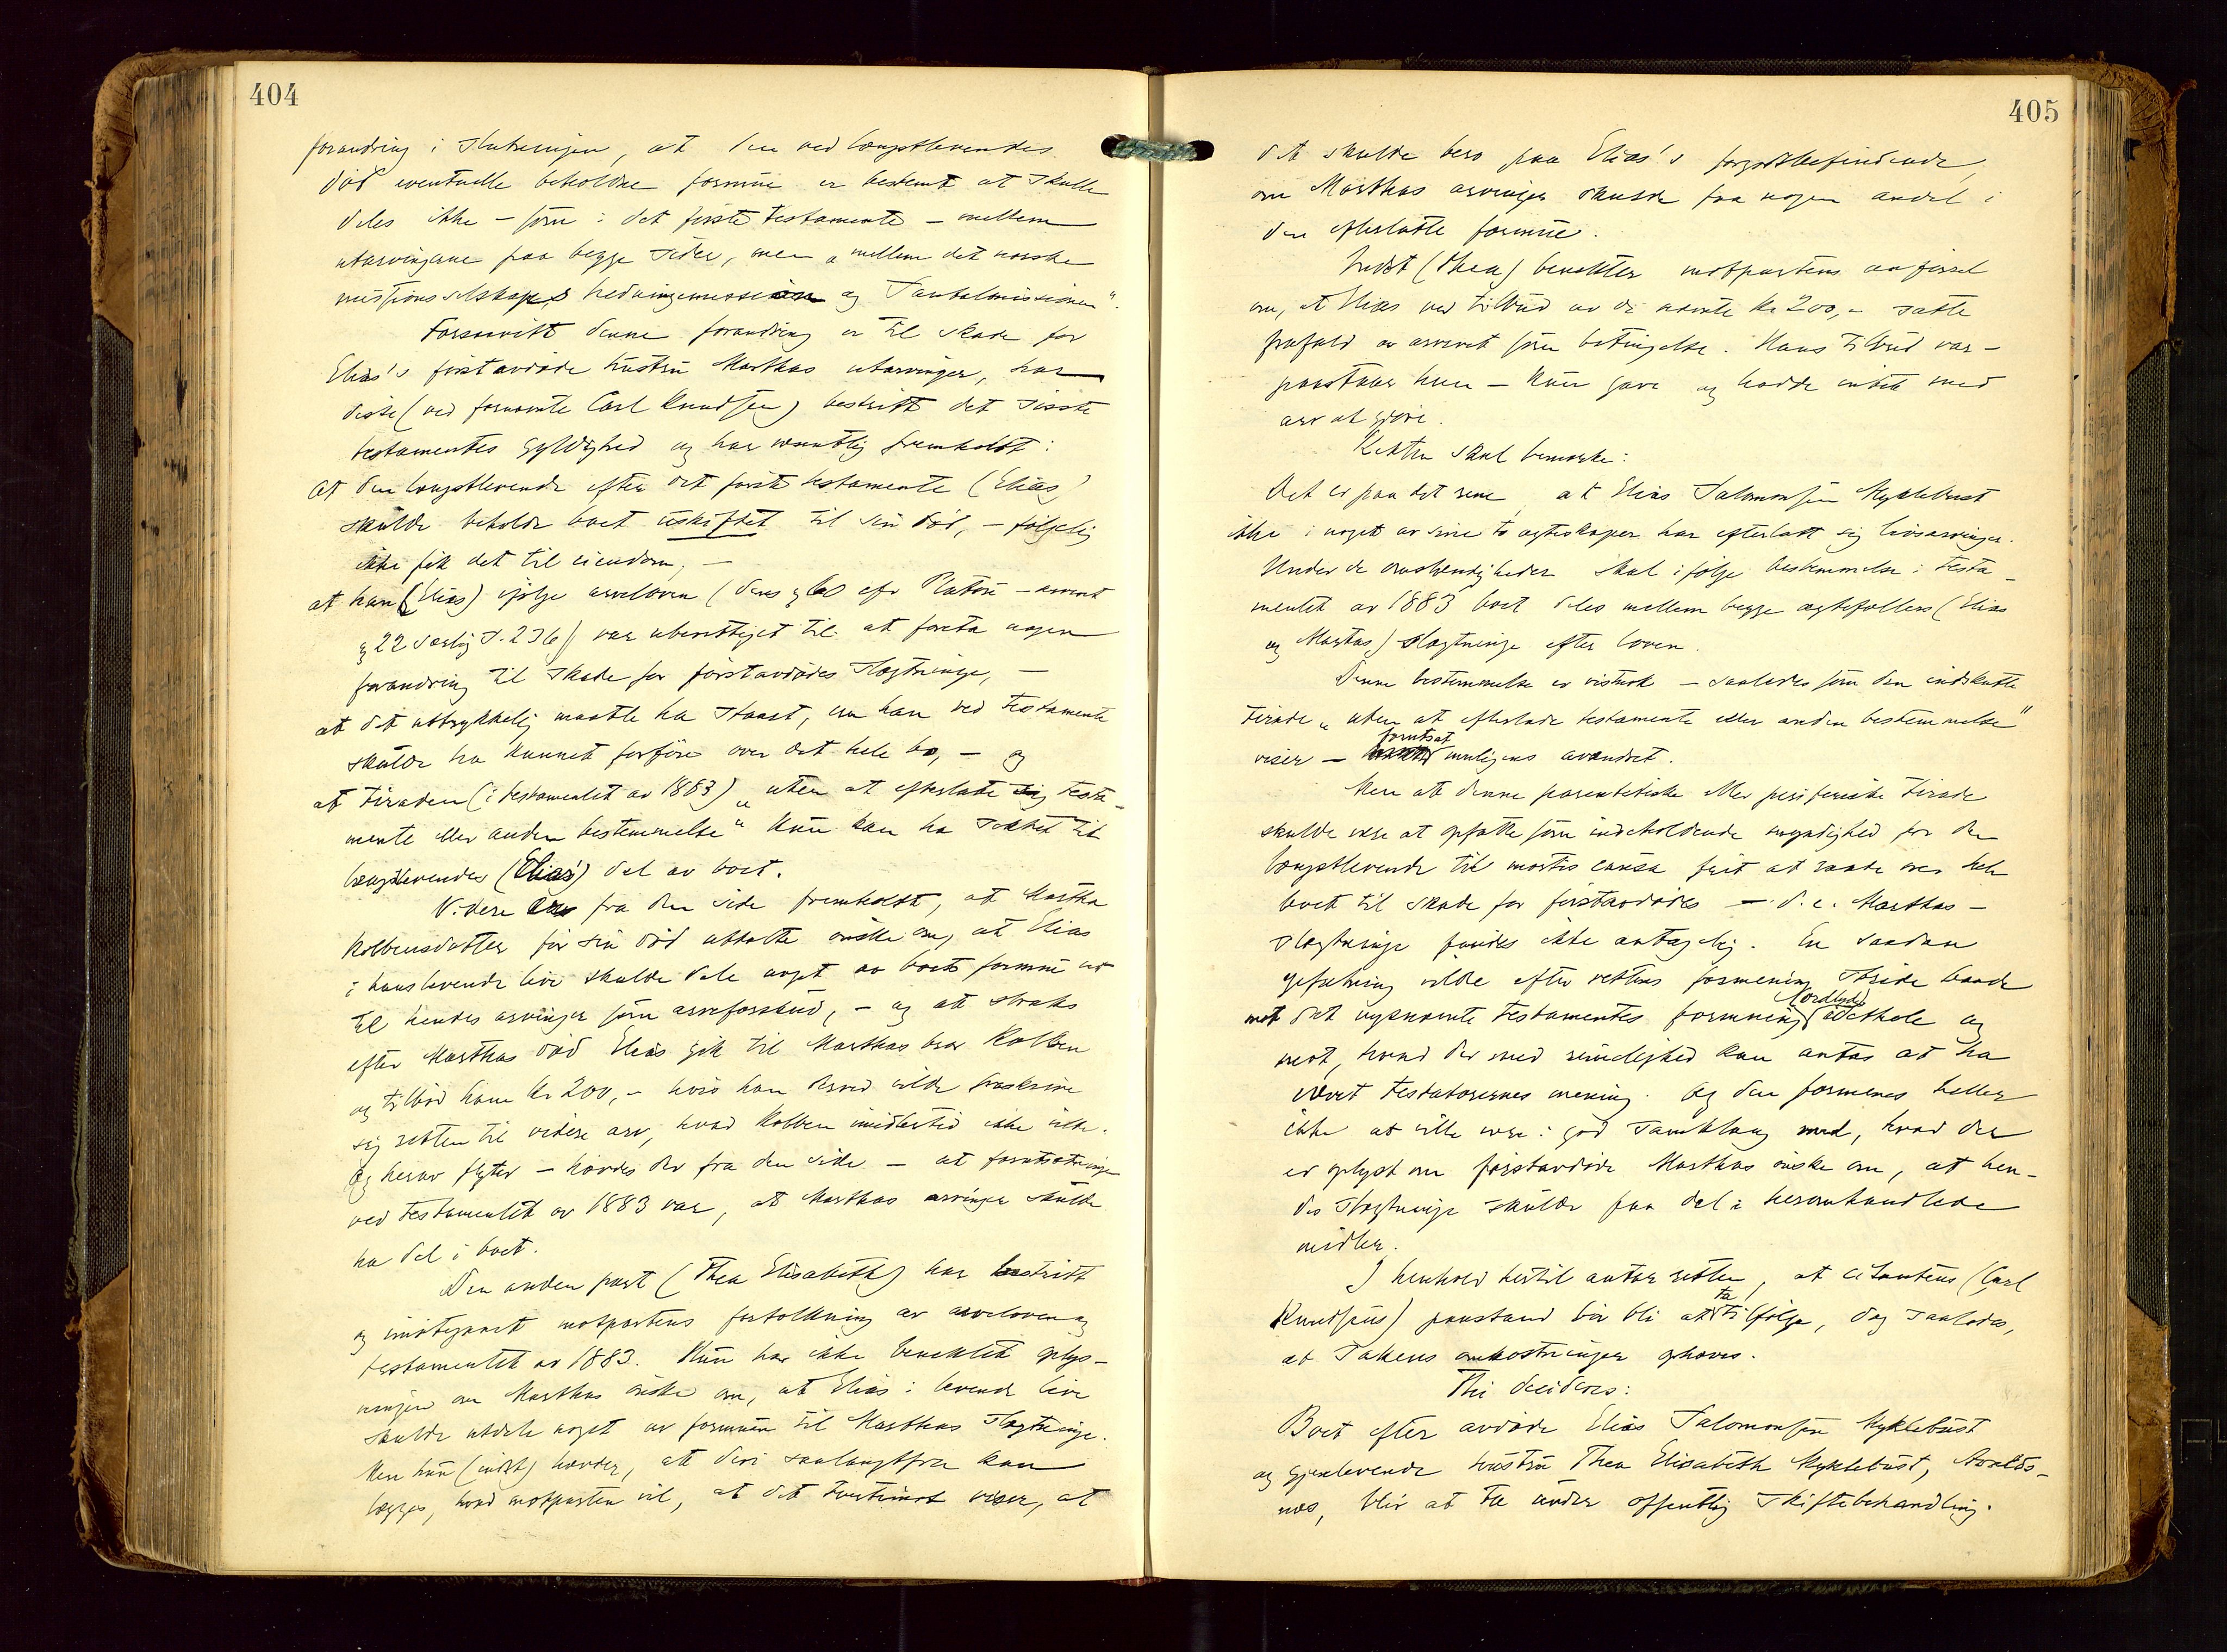 404
forandring i slutningen, at den ved længstlevendes
död eventuelle beholdne formue er bestemt at skulle
deles ikke – som i det förste testamente – mellem
utarvingerne paa begge sider, men „mellem det norske
missionsselskaps hedningemission og Santalmissionen".
Forsaavitt denne forandring er til skade for
Elias's förstavdöde hustru Marthas utarvinger, har
disse (ved fornævnte Carl Knudsen) bestritt det sidste
testamentes gyldighed og har væsentlig fremholdt:
At den længstlevende efter det förste testamente (Elias)
skulde beholde boet uskiftet til sin död, – fölgelig
ikke fik det til eiendom, –
at han (Elias) ifölge arveloven (dens § 60 cfr Platou – arveret
§ 22 særlig S. 236) var uberettiget til at foreta nogen
forandring til skade for förstavdödes slægtninge, –
at det uttrykkelig maatte ha staat, om han ved testamente
skulde ha kunnet forföie over det hele bo, – og
at tiraden (i testamentet av 1883) „uten at efterlate sig testa-
mente eller anden bestemmelse" kun kan ha sigtet til
længstlevendes (Elias's) del av boet.
Videre fra den side fremholdt, at Martha
Kolbensdatter för sin död uttalte önske om, at Elias
i hans levende live skulde dele noget av boets formue ut
til hendes arvinger som arveforskud, – og at straks
efter Marthas död Elias gik til Marthas bror Kolben
og tilböd ham kr 200, – hvis han derved vilde fraskrive
sig retten til videre arv, hvad Kolben imidlertid ikke vilde.
Og herav flyter – hævdes der fra den side – at forutsætningen
ved testamentet av 1883 var, at Marthas arvinger skulde
ha del i boet.
Den anden part (Thea Elisabeth) har bestridt
og imötegaaet motpartens fortolkning av arveloven og
testamentet av 1883. Hun har ikke benektet oplys-
ningen om Marthas önske om, at Elias i levende live
skulde utdele noget av formuen til Marthas slægtninge.
Men hun (indst) hævder, at deri saalangtfra kan
lægges, hvad motparten vil, at det tvertimot viser, at
405
det skulde bero paa Elias's forgodtbefindende,
om Marthas arvinger skulde faa nogen andel i
den efterlatte formue.
Indst (Thea) benekter motpartens anförsel
om, at Elias ved tilbud av de nævnte kr 200,- satte
frafald av arveret som betingelse. Hans tilbud var –
paastaar hun – kun gave og hadde intet med
arv at gjöre.
Retten skal bemerke:
Det er paa det rene, at Elias Salomonsen Myklebust
ikke i noget av sine to egteskaper har efterlatt sig livsarvinger.
Under de omstendigheder skal ifölge bestemmelse i testa-
mentet av 1883 boet deles mellem begge egtefællers (Elias
og Marthas) slægtninge efter loven.
Denne bestemmelse er visnok – saaledes som den indskutte
tirade „uten at efterlade testamente eller anden bestemmelse"
viser – forutsat muligens avændret.
Men at denne parentetiske eller periferiske tirade
skulde være at opfatte som indeholdende myndighed for den
længstlevende til mortis causa frit at raade over hele
boet til skade for förstavdödes – d.e. Marthas –
slægtninge findes ikke antagelig. En saadan
opfatning vilde efter rettens formening stride baade
mot det nysnævnte testamentes formning (ordlyd) idethele og
mot, hvad der med rimelighed kan antas at ha
været testatorernes mening. Og den formenes heller
ikke at ville være i god samklang med, hvad der
er oplyst om förstavdöde Marthas önske om, at hen-
des slægtninge skulde faa del i heromhandlede
midler.
I henhold hertil antar retten, at citantens (Carl
Knudsens) paastand bör bli at ta tilfölge, dog saaledes,
at sakens omkostninger ophæves.
Thi decideres:
Boet efter avdöde Elias Salomonsen Myklebust
og gjenlevende hustru Thea Elisabeth Myklebust, Avalds-
nes, blir at ta under offentlig skiftebehandling.